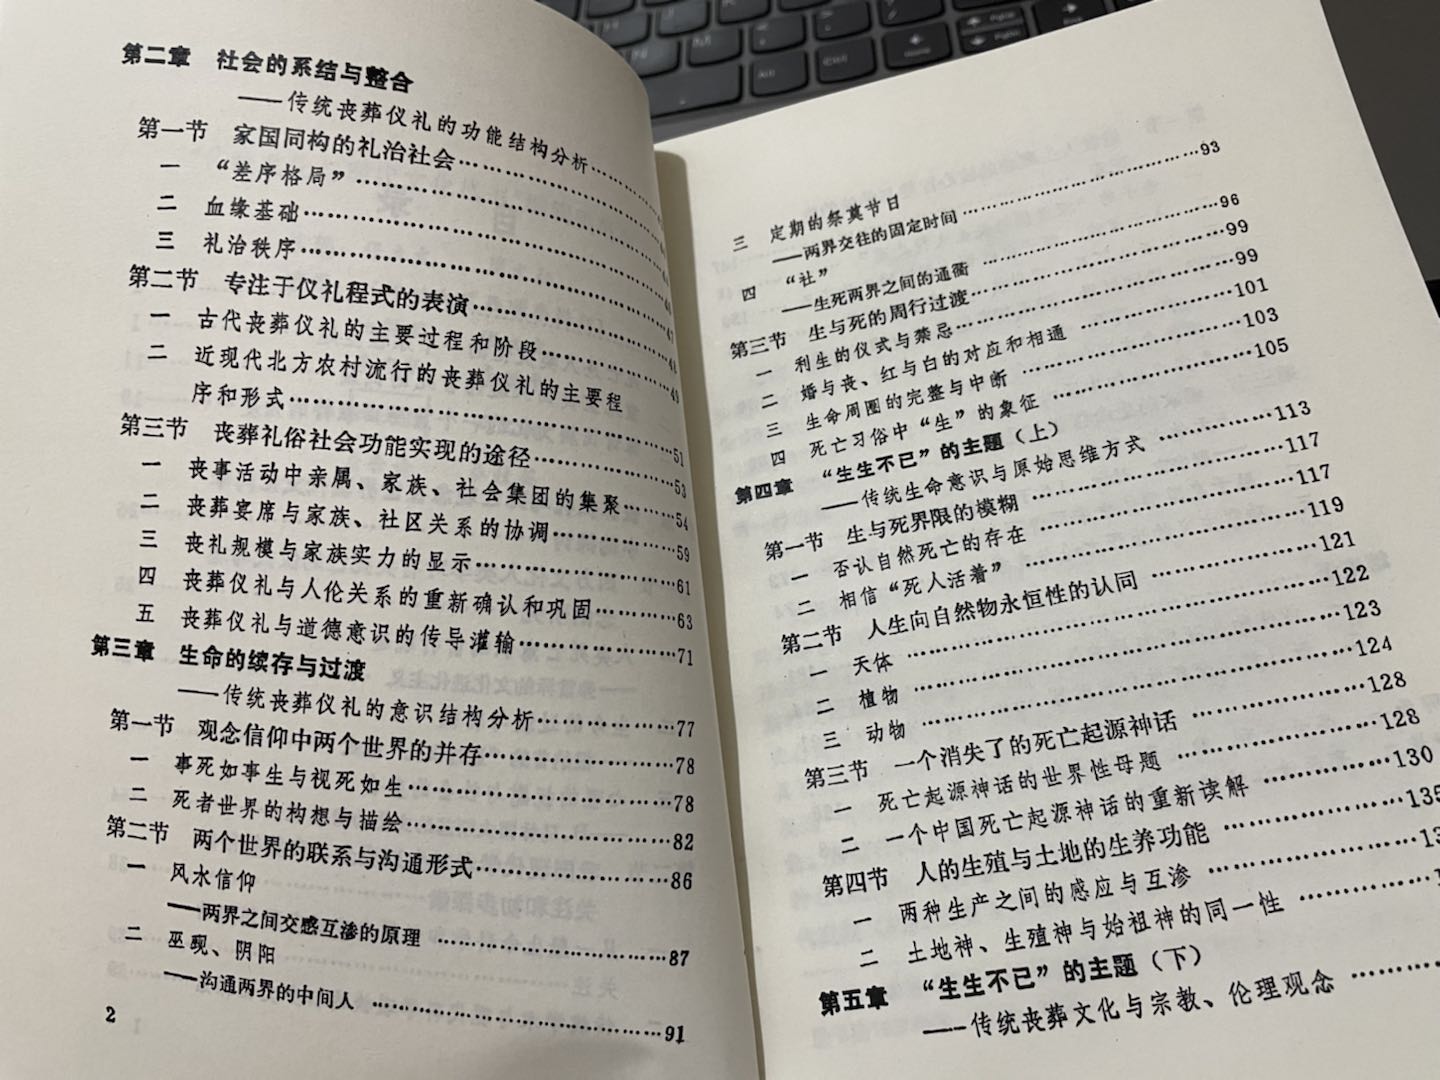 第二章 社会的系结与整合
——传统丧葬仪礼的功能结构分析……
第一节 家国同构的礼治社会……
一 “差序格局”……
二 血缘基础……
三 礼治秩序……
第二节 专注于仪礼程式的表演……
一 古代丧葬仪礼的主要过程和阶段……
二 近现代北方农村流行的丧葬仪礼的主要程
序和形式……
第三节 丧葬礼俗社会功能实现的途径……51
一 丧事活动中亲属、家族、社会集团的集聚……53
二 丧葬宴席与家族、社区关系的协调……54
三 丧礼规模与家族实力的显示……59
四 丧葬仪礼与人伦关系的重新确认和巩固……61
五 丧葬仪礼与道德意识的传导灌输……63
第三章 生命的续存与过渡
——传统丧葬仪礼的意识结构分析……77
第一节 观念信仰中两个世界的并存……78
一 事死如事生与视死如生……78
二 死者世界的构想与描绘……82
第二节 两个世界的联系与沟通形式……86
一 风水信仰
——两界之间交感互渗的原理……87
二 巫觋、阴阳
——沟通两界的中间人……91
2
三 定期的祭奠节日
——两界交往的固定时间……93
四 “社”
——生死两界之间的通衢……96
第三节 生与死的周行过渡……99
一 利生的仪式与禁忌……99
二 婚与丧、红与白的对应和相通……101
三 生命周圈的完整与中断……103
四 死亡习俗中“生”的象征……105
第四章 “生生不已”的主题(上)
——传统生命意识与原始思维方式……113
第一节 生与死界限的模糊……117
一 否认自然死亡的存在……117
二 相信“死人活着”……119
第二节 人生向自然物永恒性的认同……121
一 天体……122
二 植物……123
三 动物……124
第三节 一个消失了的死亡起源神话……128
一 死亡起源神话的世界性母题……128
二 一个中国死亡起源神话的重新读解……130
第四节 人的生殖与土地的生养功能……135
一 两种生产之间的感应与互渗……
二 土地神、生殖神与始祖神的同一性……
第五章 “生生不已”的主题(下)
——传统丧葬文化与宗教、伦理观念……